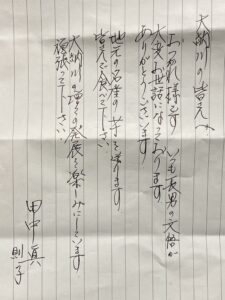 大納川の皆え〜
おつかれ様です いつも長男の元倍が
大変お世話になっております
ありがとうございます
地元の名産の芋を送ります
皆え で食べて下さい
大納川の増々の発展を楽しみにしています
頑張って下さい
田中 真
則子